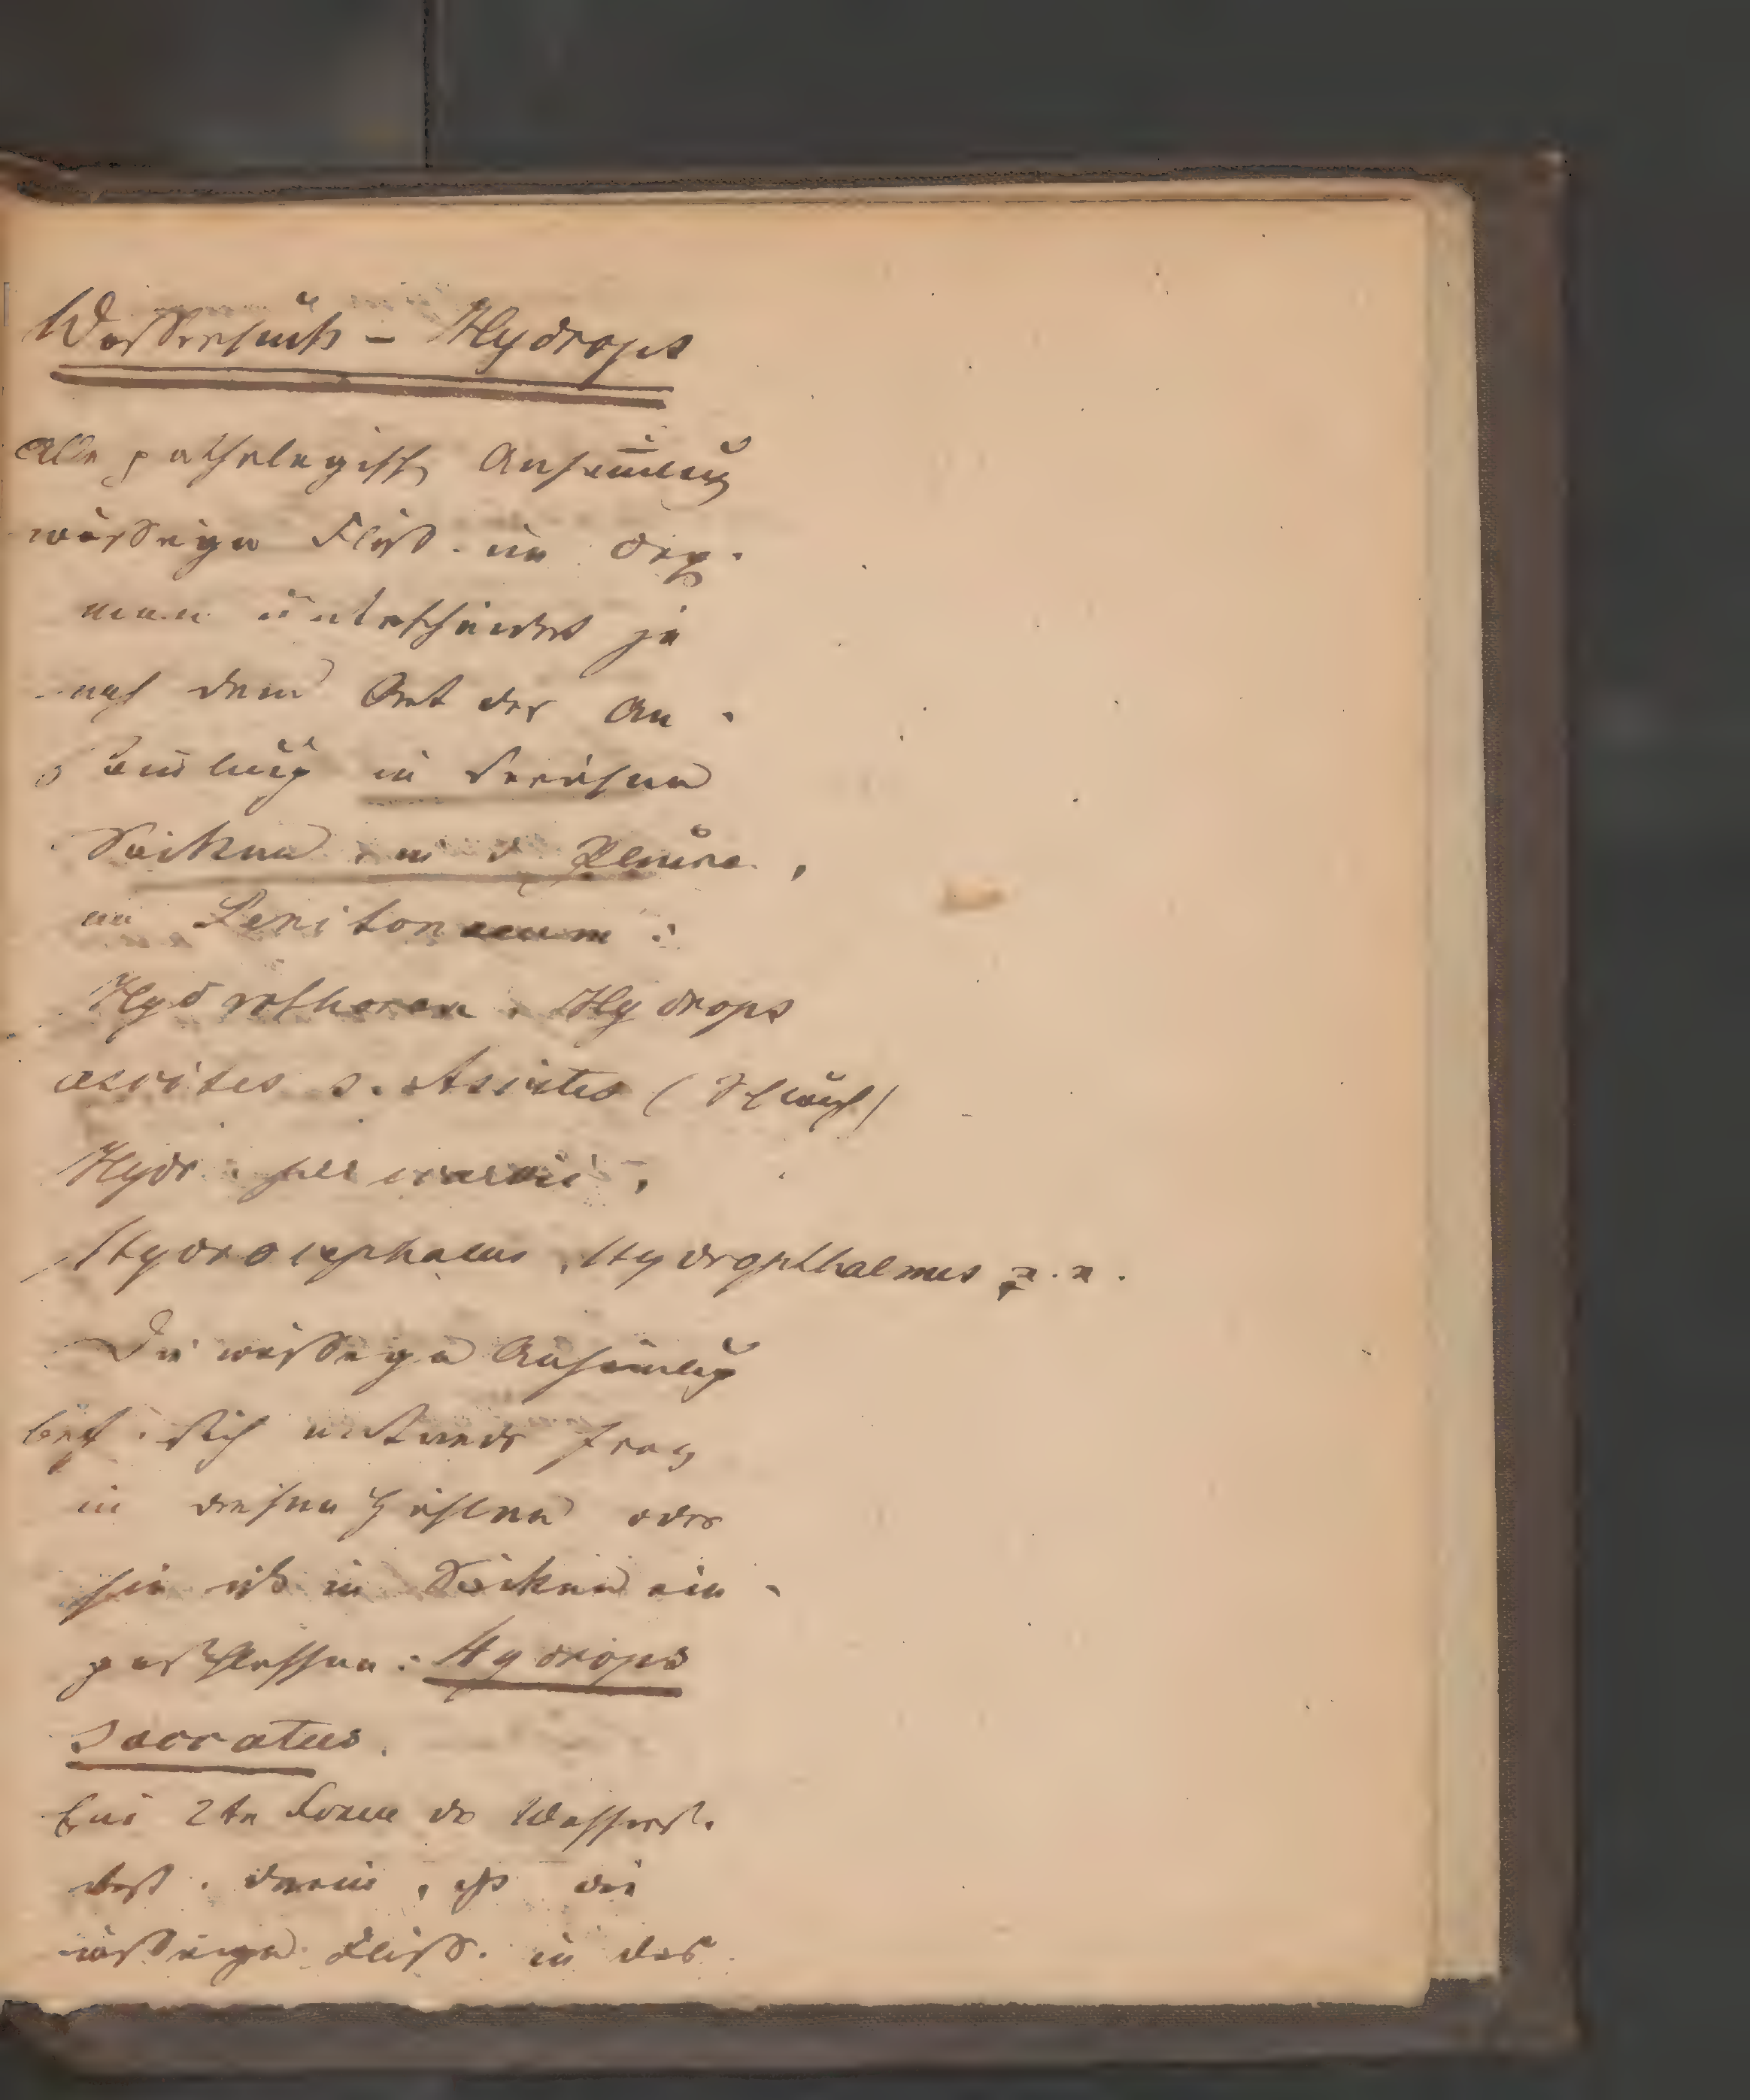 Wassersucht – Hydrops
Alle pathologisch Ansam̅lung
wässrige Flüss. im Org.
man unterscheidet je
nach dem Ort der An-
sam̅lung in serösen
Säcken, in d Pleura,
im Peritonaeum:
Hydrothorax, Hydrops
ascites s. Ascites (Schlauch)
Hydr. pericardii,
Hydrocephalus, Hydrophthalmus
Die wässrige Ansam̅lung
bef. sich entweder frei
in diesen Höhlen oder
sie ist in Säcken ein-
geschlossen: Hydrops
saccatus.
Eine 2te Form der Wassers.
best. darin, dß die
wässrige Flüss. in das